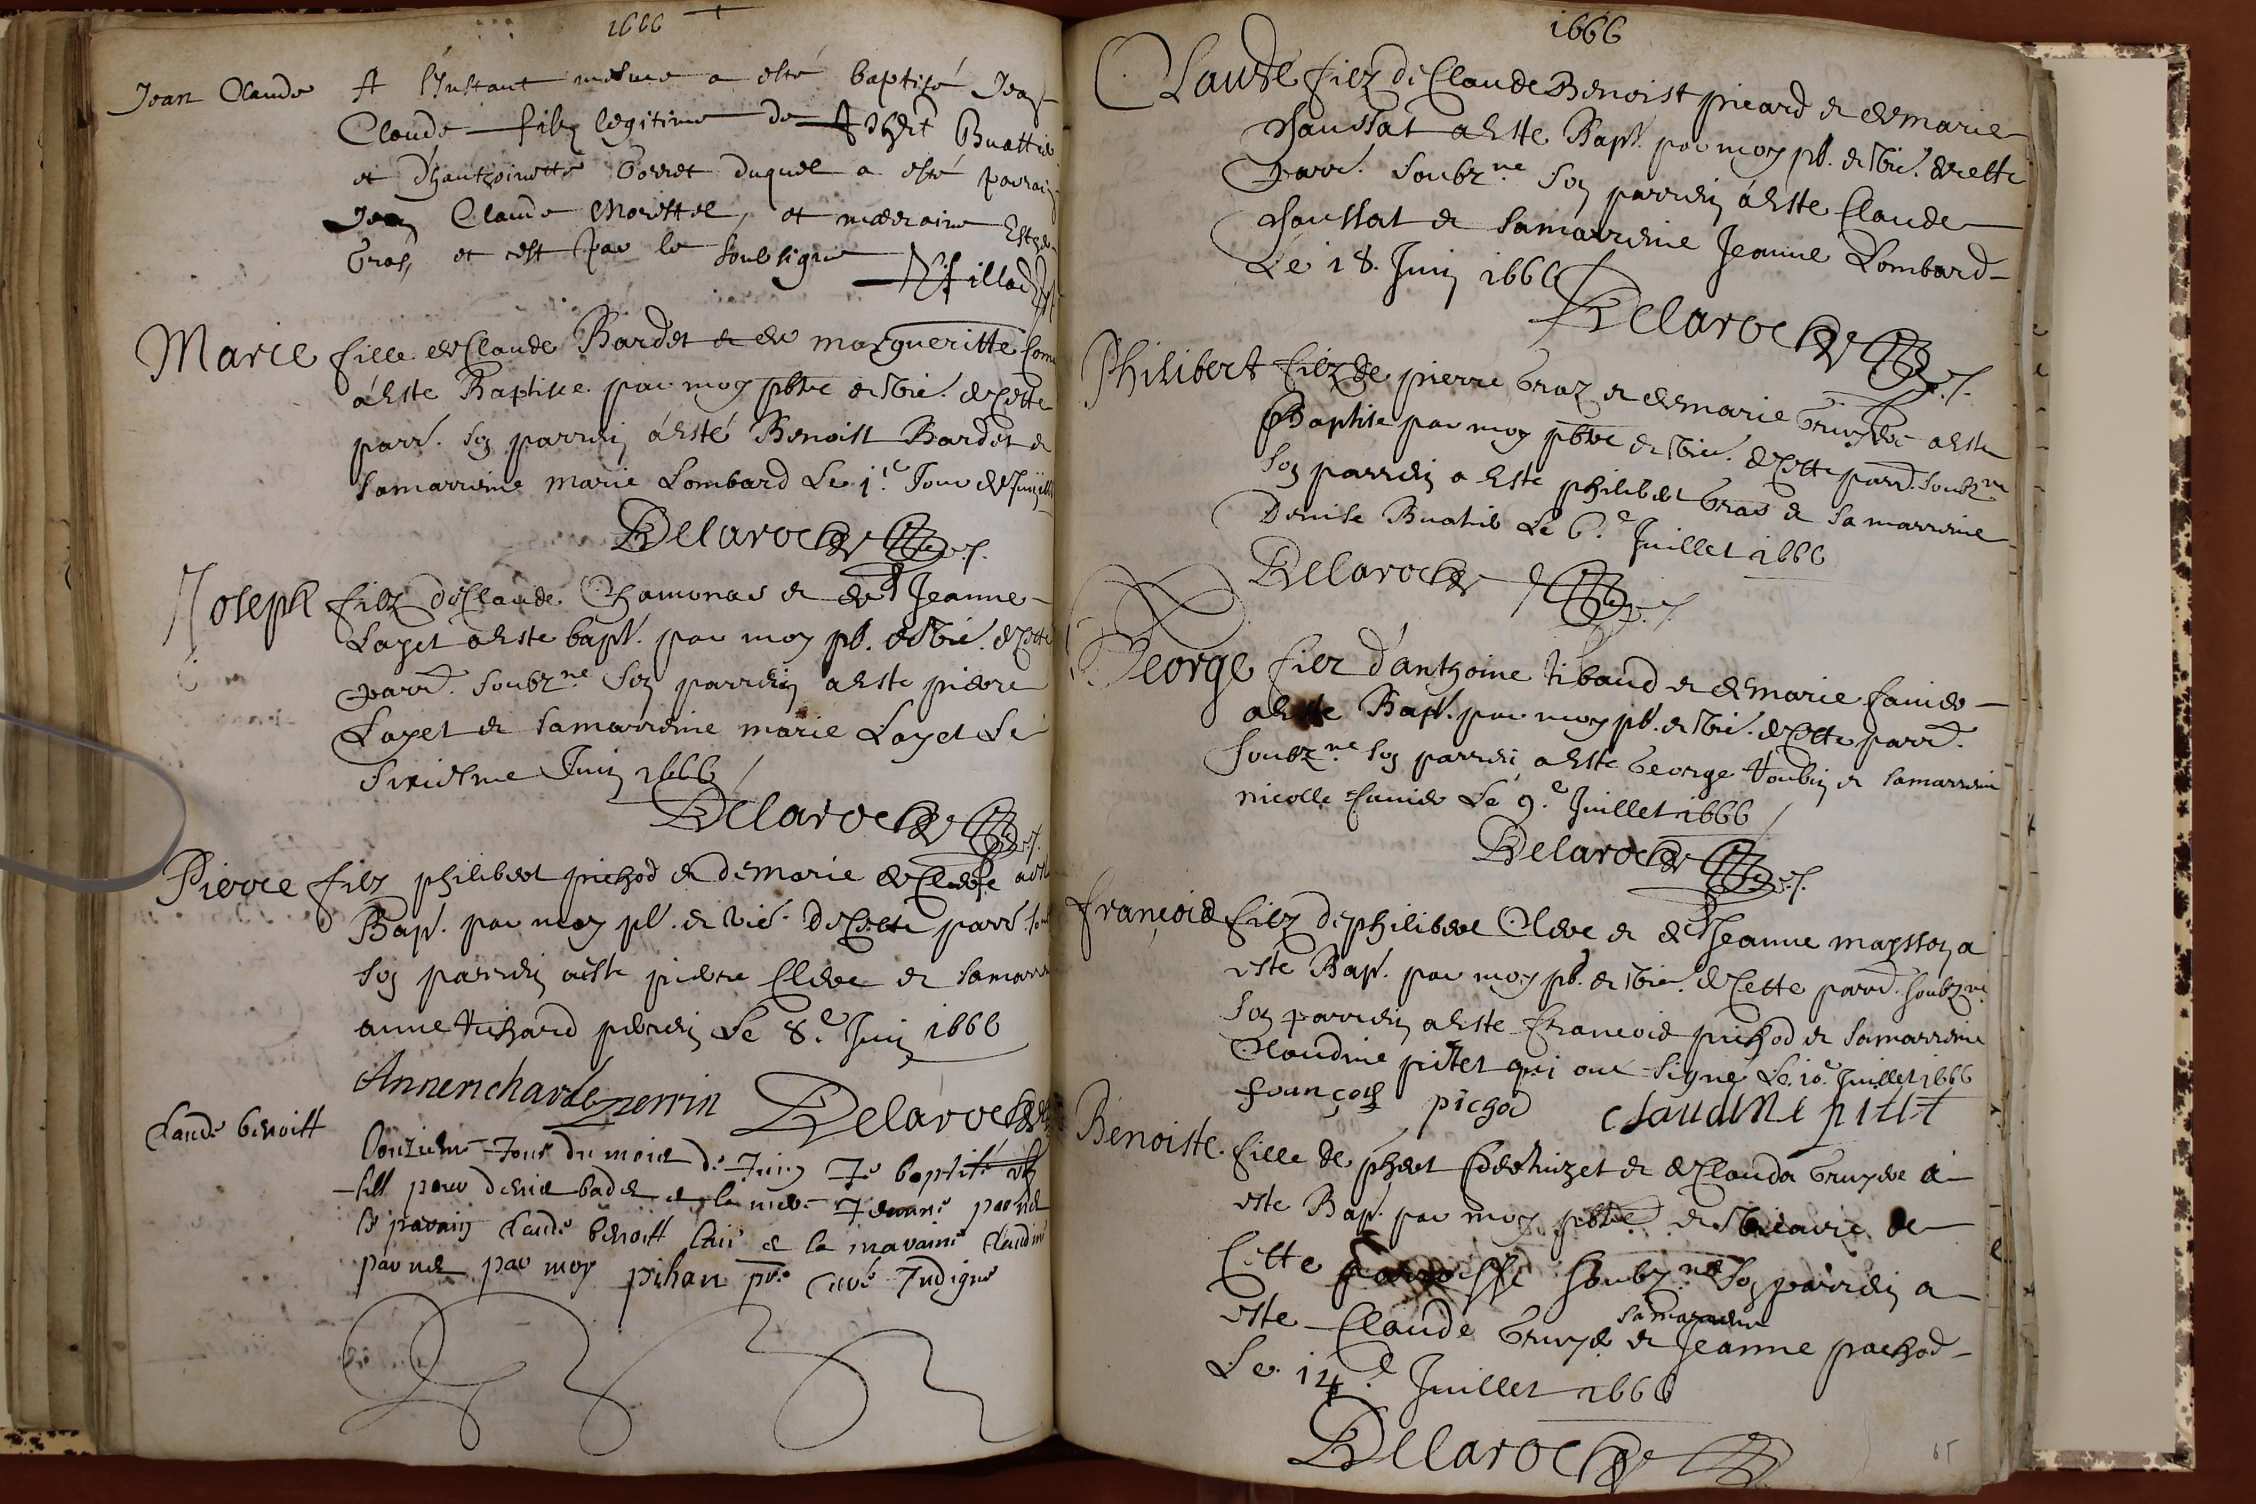 1666
Jean Claude A l'Instant mesme a esté baptisé Jean
Claude filz legitime de Buattie
et d'hanthoinette Gorret duquel a esté parrain
Jean Claude Morettel, et marraine
Gras, et est par le soubsigné
Marie fille de Claude Bardet et de margueritte
a Este Baptisee par moy pbre et Vic. de Cette
parr. son parrein a Esté Benoist Bardet et
sa marreine marie Lombard Le 1.e Jour de
Delaroche
Joseph filz de Claude Chamonas et de Jeanne
Layet a Este bapt. par moy pb. et Vic. de Cette
parr. soubz.ne son parrein a Este pierre
Layet et sa marreine marie Layet Le
sixiesme Juin 1666
Delaroche
Pierre filz philibert pichod et de marie de
Bap. par moy pb. et vic. de Cette parr.
son parrein a este pierre Clerc et sa
anne richard perrin Le 8.e Juin 1666
Anne richard perrin Delaroche
Claude benoist
L'onzieme Jour du mois de Juin Je baptisé
pere denis badet et la mere Jeanne
le parain Claude benoist et la maraine Claudine
par moy pihan pre curé Indigne
1666
Claude filz de Claude Benoist picard et de marie
chaussat a Este Bap. par moy pb. et Vic. de cette
parr. soubz.ne son parrein a Este Claude
chaussat et sa marreine Jeanne Lombard
Le 18. Juin 1666
Delaroche
Philibert filz de pierre Graz et de marie Gruyere a este
Baptise par moy pbre et Vic. de Cette parr. soubz.ne
son parrein a Este philibert Gras et sa marreine
Denise Buatie Le 6.e Juillet 1666
Delaroche
George filz d'anthoine tibaud et de marie
a Este Bap. par moy pb. et Vic. de Cette parr.
soubz.ne son parrein a Este George toubin et sa marreine
nicolle Le 9.e Juillet 1666
Delaroche
françois filz de philibert Clerc et de Jeanne maysson a
este Bap. par moy pb. et Vic. de Cette parr. soubz.ne
son parrein a Este françois pichod et sa marreine
Claudine pitet qui ont signé Le 10.e Juillet 1666
françois pichod claudine pitet
Benoiste fille de phbert et de Clauda Gruyere a
este Bap. par moy pbre et Vicaire de
Cette parroisse soubz.ne son parrein a
sa marreine
este Claude Gruyer et Jeanne pachod
Le 14.e Juillet 1666
Delaroche
65